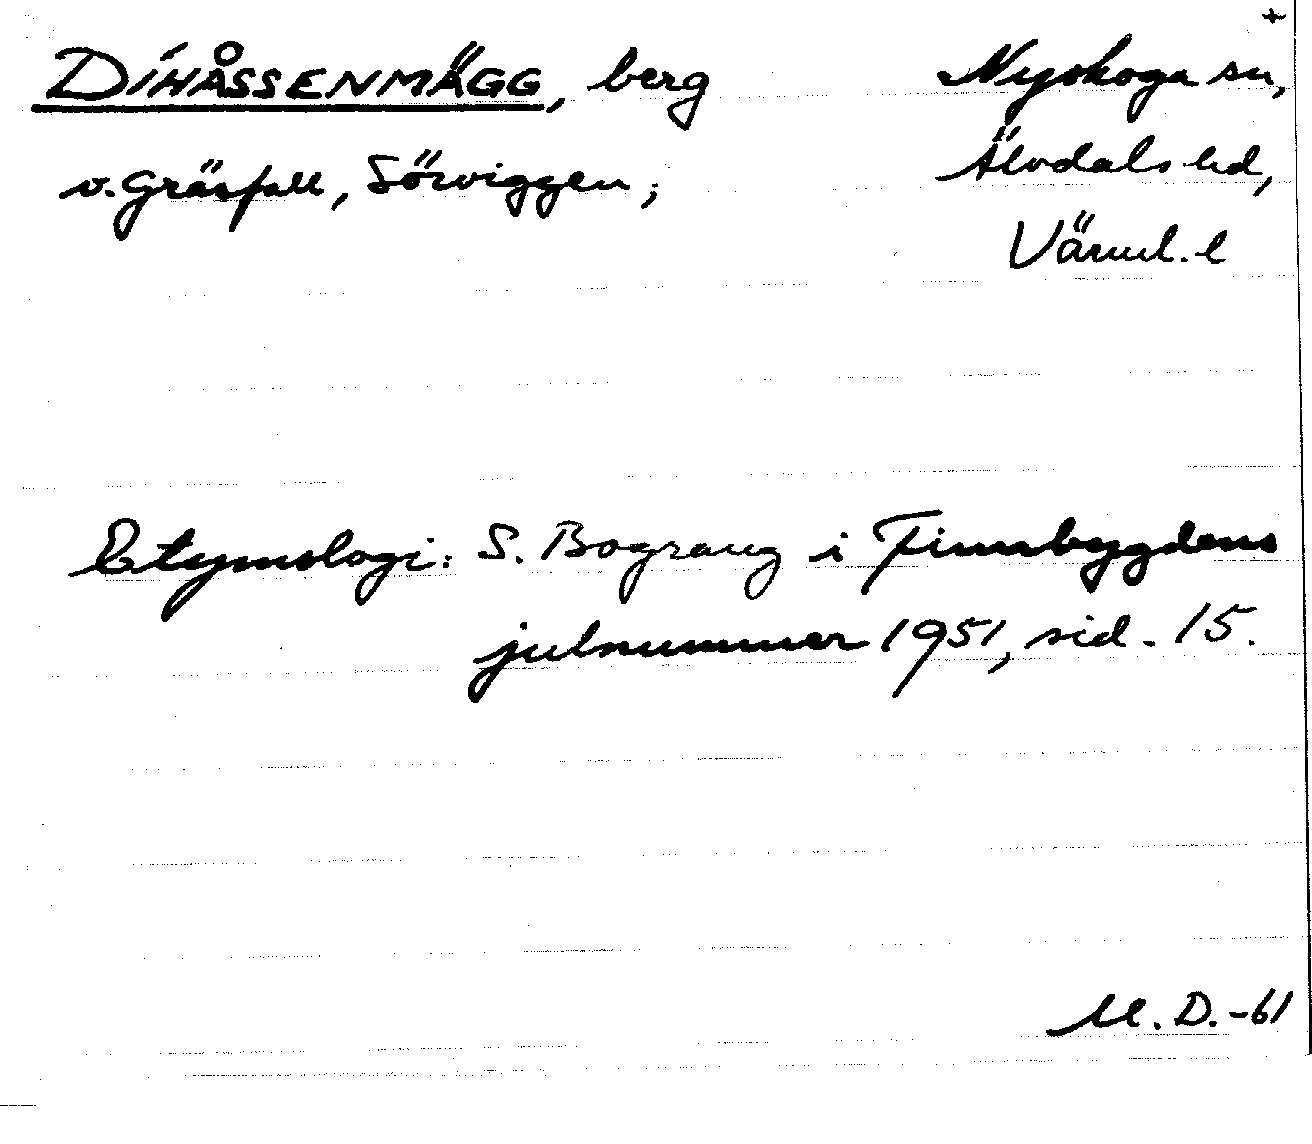 DIHÅSSENMÄGG, berg
v. Gräsfall, Sörviggen;
Nyskoga sn,
Älvdals hd,
Värml. l
Etymologi: S. Bograng i Finnbygdens
julnummer 1951, sid. 15.
M. D. -61